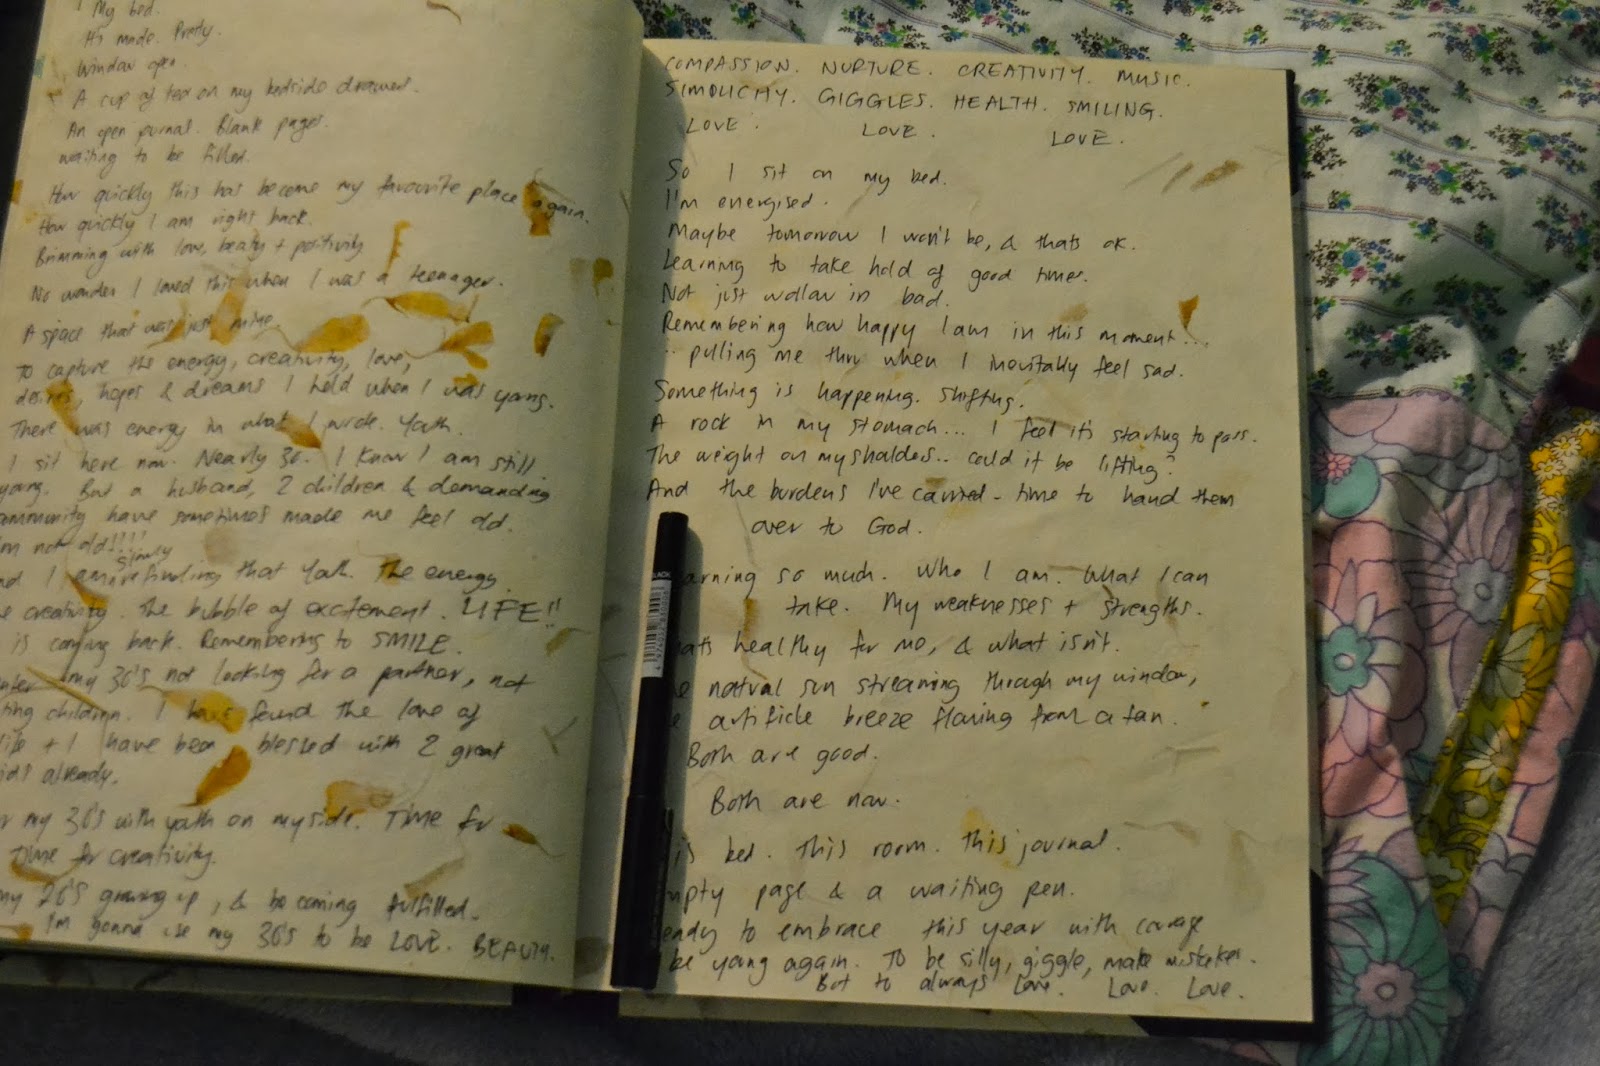 My bed.
It's made. Pretty.
Window open.
A cup of tea on my bedside drawer.
An open journal. Blank pages.
waiting to be filled.
How quickly this has become my favourite place again.
How quickly I am right back.
Brimming with love, beauty + positivity
No wonder I loved this when I was a teenager.
A space that was just mine
to capture the energy, creativity, love,
desires, hopes & dreams I held when I was young.
There was energy in what I wrote. Youth.
I sit here now. Nearly 30. I know I am still
young. But a husband, 2 children & demanding
community have sometimes made me feel old.
I'm not old!!!!
slowly
and I am refinding that youth. The energy.
The creativity. The bubble of excitement. LIFE!!
is coming back. Remembering to SMILE.
my 30's not looking for a partner, not
children. I have found the love of
life + I have been blessed with 2 great
kids already.
my 30's with youth on my side. Time for
Time for creativity.
my 20's growing up, & becoming fulfilled.
I'm gonna use my 30's to be LOVE. BEAUTY.
COMPASSION. NURTURE. CREATIVITY. MUSIC.
SIMPLICITY. GIGGLES. HEALTH. SMILING.
LOVE. LOVE. LOVE.
So I sit on my bed.
I'm energised.
Maybe tomorrow I won't be, & thats ok.
Learning to take hold of good times.
Not just wallow in bad.
Remembering how happy I am in this moment...
.. pulling me thru when I inevitably feel sad.
Something is happening. Shifting.
A rock in my stomach... I feel it's starting to pass.
The weight on my shoulders.. could it be lifting?
And the burdens I've carried - time to hand them
over to God.
Learning so much. Who I am. What I can
take. My weaknesses + strengths.
Whats healthy for me, & what isn't.
The natural sun streaming through my window,
The artificle breeze flowing from a fan.
Both are good.
Both are now.
This bed. This room. This journal.
Empty page & a waiting pen.
Ready to embrace this year with courage
be young again. To be silly, giggle, make mistakes.
But to always Love. Love. Love.
BLACK